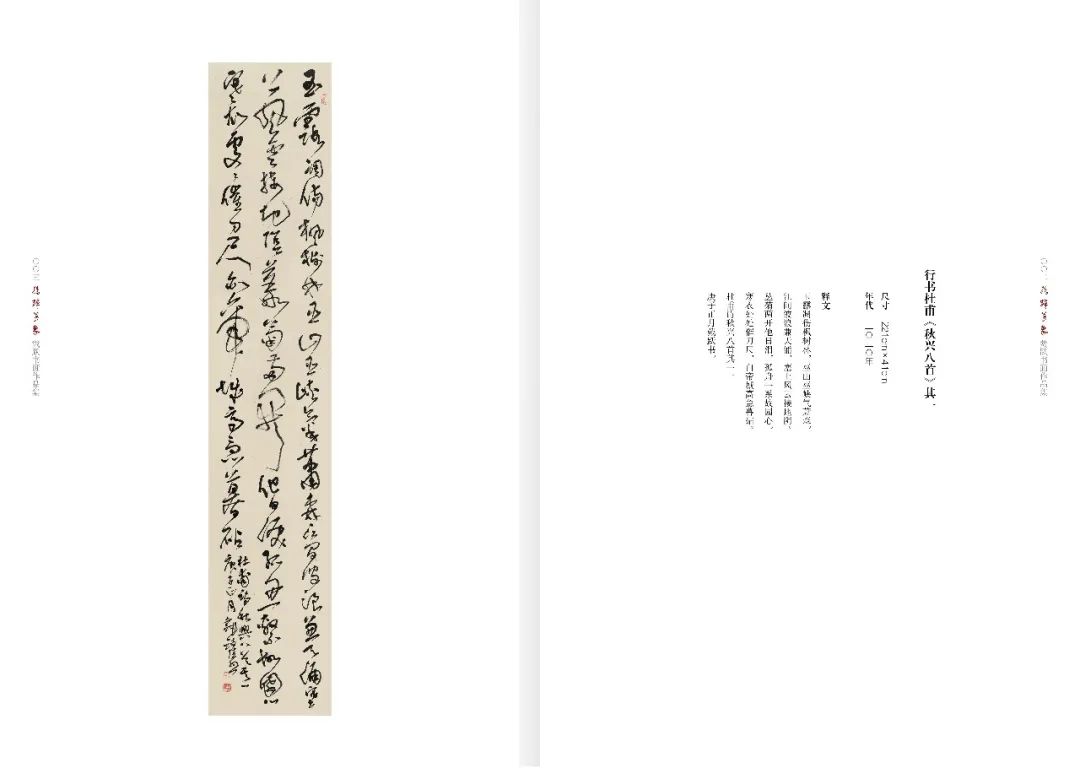 行书杜甫《秋兴八首》其一
尺寸 221cm×41cm
年代 二〇二〇年
释文
玉露凋伤枫树林，巫山巫峡气萧森。
江间波浪兼天涌，塞上风云接地阴。
丛菊两开他日泪，孤舟一系故园心。
寒衣处处催刀尺，白帝城高急暮砧。
杜甫诗秋兴八首其一。
庚子正月 跃书。
书画作品集
玉露凋伤枫树林巫山巫峡气萧森江间波浪兼天涌塞
上风云接地阴丛菊两开他日泪孤舟一系故园心
寒衣处处催刀尺白帝城高急暮砧
杜甫诗秋兴八首其一
庚子正月
〇〇三
书画作品集